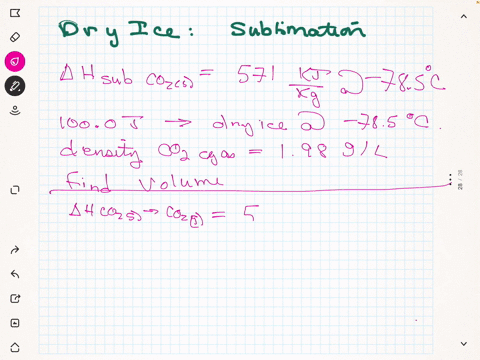 Dry Ice: Sublimation
ΔH sub CO2(s) = 571 KJ/Kg @ -78.5°C
100.0 J → dry ice @ -78.5°C.
density CO2 gas = 1.98 g/L
Find Volume
28 / 28
ΔH CO2(s) → CO2(g) = 5